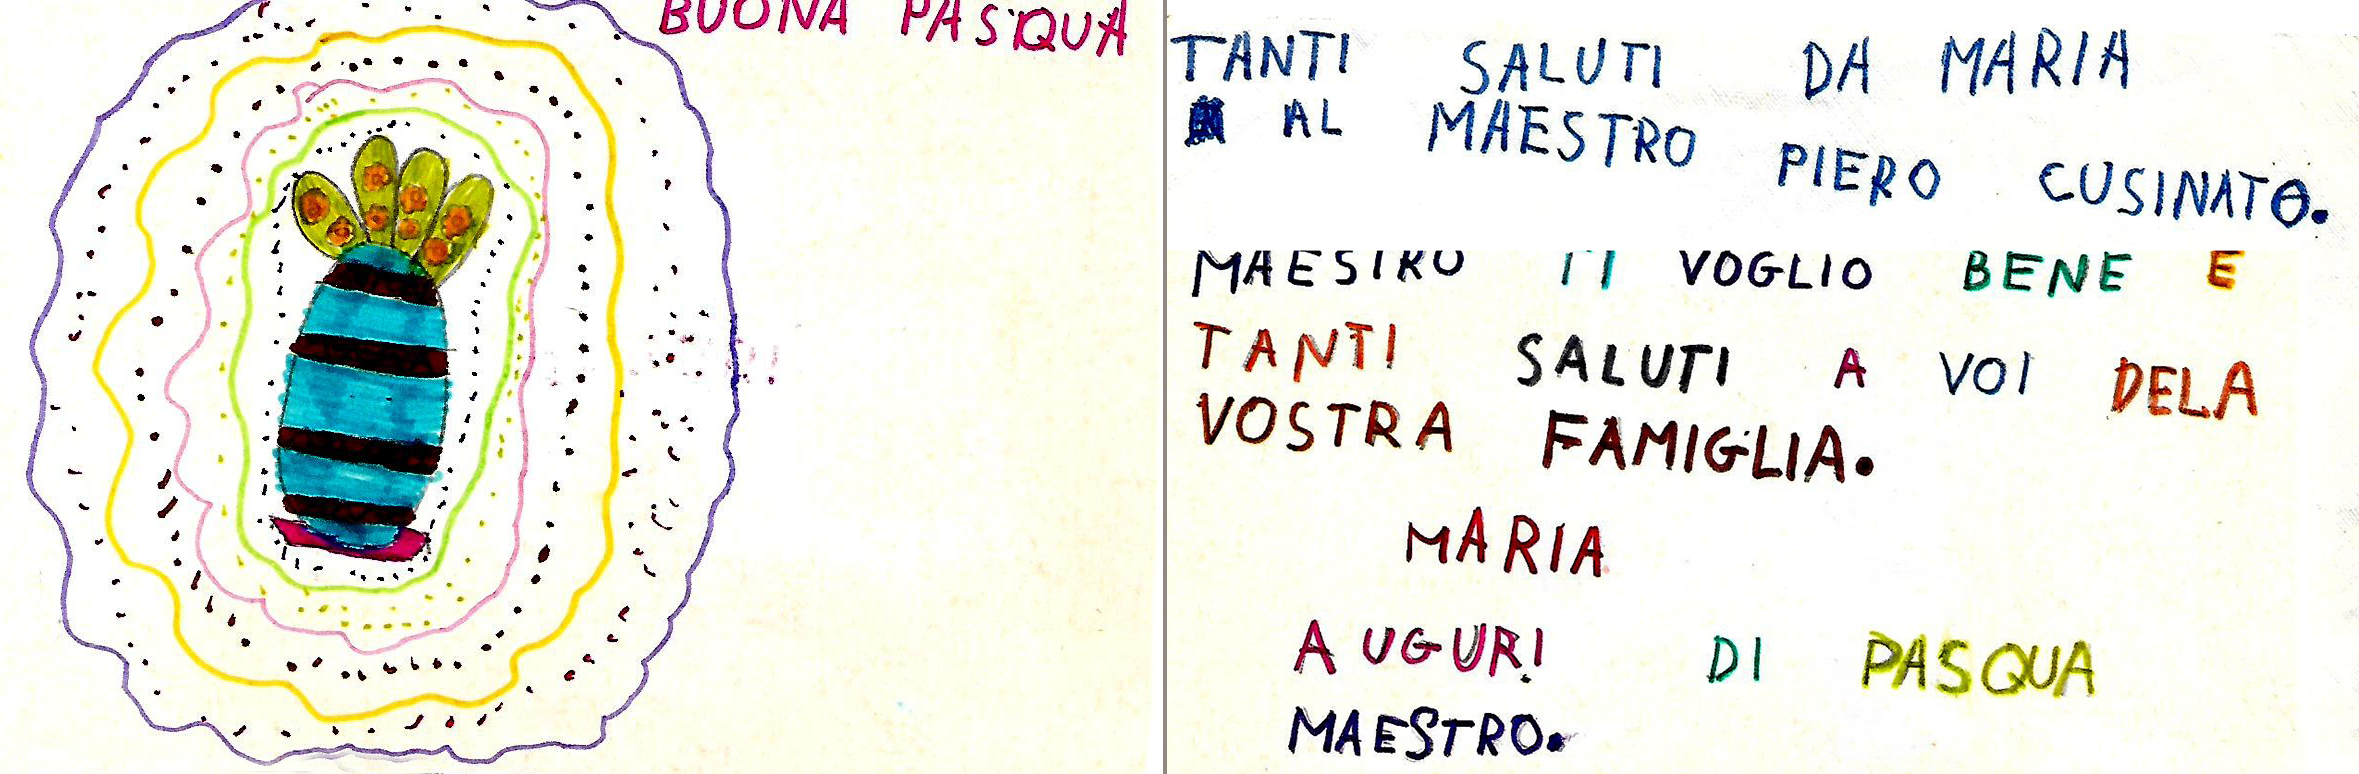 BUONA PASQUA
TANTI SALUTI DA MARIA
AL MAESTRO PIERO CUSINATO.
MAESTRO TI VOGLIO BENE E
TANTI SALUTI A VOI DELA
VOSTRA FAMIGLIA.
MARIA
AUGURI DI PASQUA
MAESTRO.